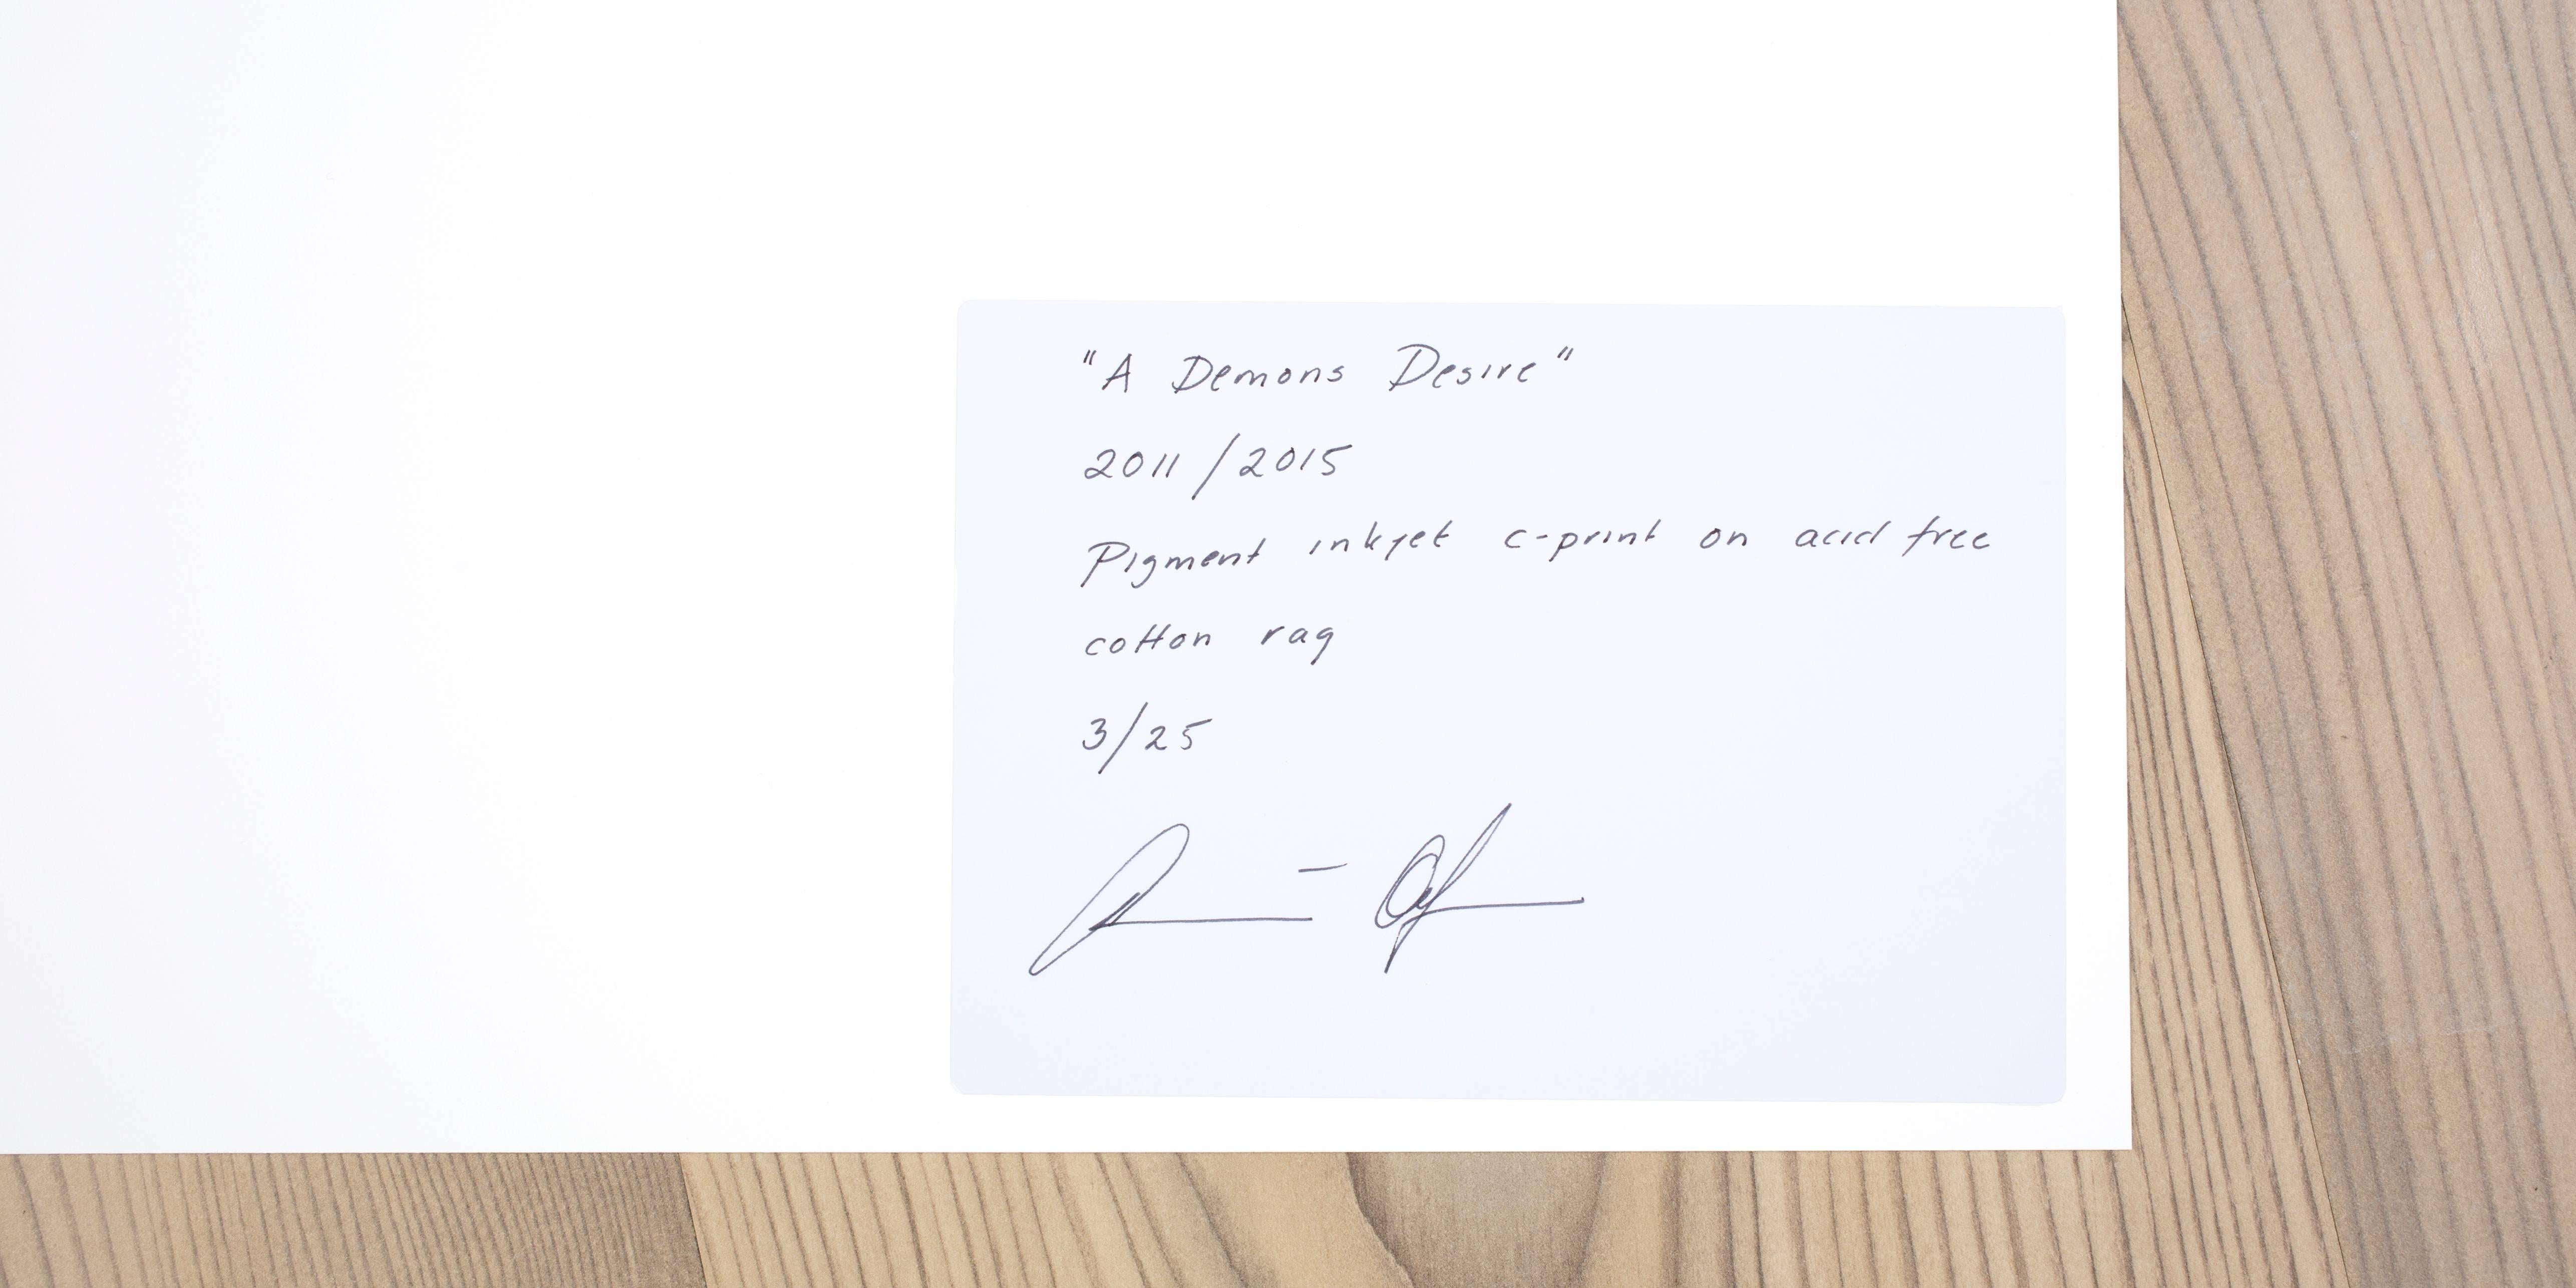 "A Demons Desire"
2011/2015
Pigment inkjet c-print on acid free
cotton rag
3/25